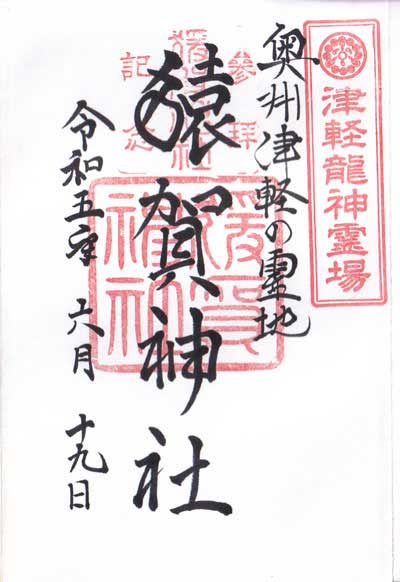 津軽龍神霊場
奥州津軽の霊地
参拝
記念
猿賀神社
猿賀
神社
令和五年 六月 十九日